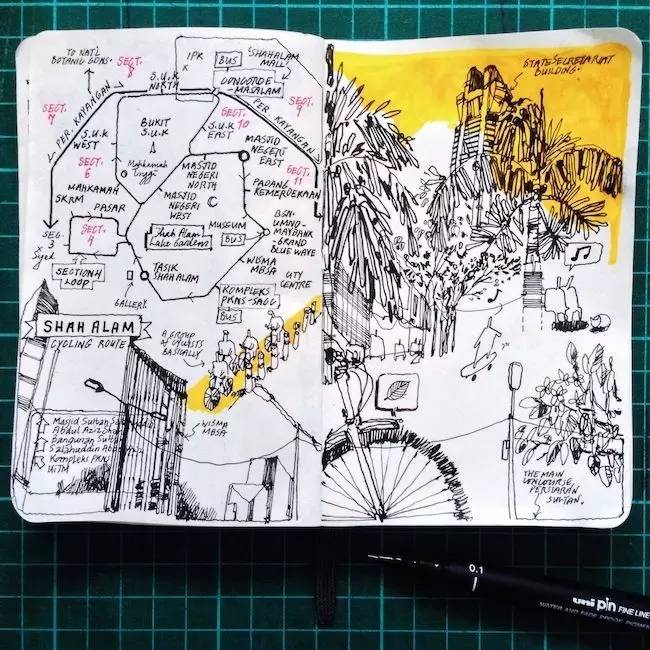 TO NAT'L
BOTANIC GDNS.
SECT.
8
SECT.
7
PER. KAYANGAN
S.U.K
NORTH
IPK
X
BUS
SHAH ALAM
MALL
CONCORDE-
MASALAM
PER. KAYANGAN
SECT.
9
S.U.K
WEST
BUKIT
S.U.K
S.U.K
EAST
SECT.
10
MASJID
NEGERI
EAST
SECT.
6
Mahkamah
Tinggi
MASJID
NEGERI
NORTH
SECT.
11
PADANG
KEMERDEKAAN
MAHKAMAH
SKRM
PASAR
MASJID
NEGERI
WEST
MUSEUM
BUS
BGN.
UMNO-
MAYBANK-
GRAND
BLUE WAVE
SEC.
3
X
Syed
SECT.
4
SECTION 4
LOOP
Shah Alam
Lake Gardens
TASIK
SHAH ALAM
GALLERY
WISMA
MBSA
UTY
CENTRE
KOMPLEKS
PKNS-SACC
BUS
SHAH ALAM
CYCLING ROUTE
A GROUP
OF CYCLISTS
BASICALLY
WISMA
MBSA
Masjid Sultan
Abdul Aziz Shah
Bangunan Sultan
Salahuddin Abdul
Kompleks PKNS
UiTM
STATE SECRETARIAT
BUILDING.
THE MAIN
CONCOURSE,
PERSIARAN
SULTAN.
0.1
uni pin FINE LINE
WATER AND FADE PROOF PIGMENT